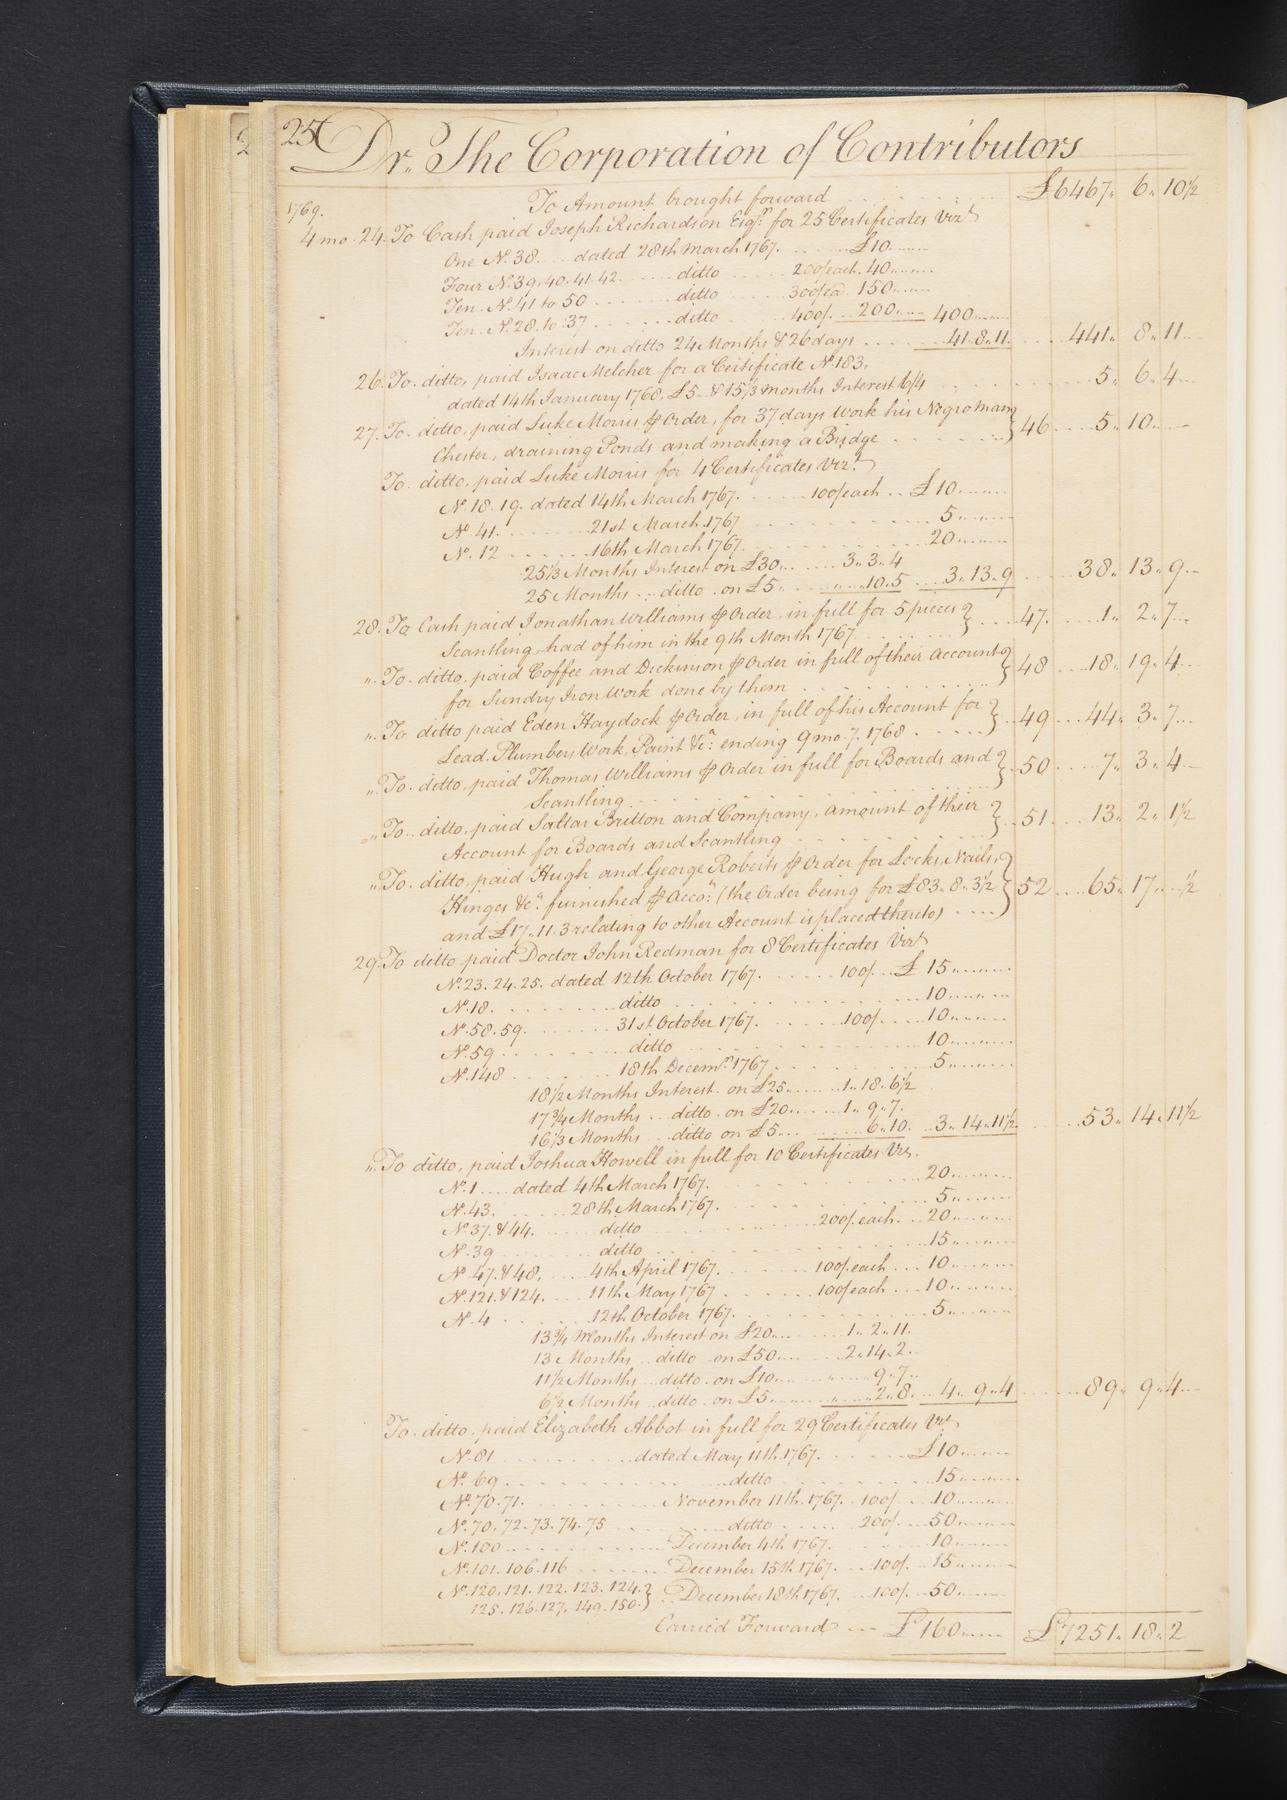 25
Dr. The Corporation of Contributors
To Amount brought forward . . . . £6467 " 6 " 10½
1769.
4mo. 24. To Cash paid Joseph Richardson Esqr. for 25 Certificates Vizt
One No. 38. ... dated 28th March 1767. ....... £10........
Four No. 39. 40. 41. 42. ...... ditto ...... 200/each. 40........
Ten. No. 41 to 50 ........ ditto ....... 300/ea. 150.......
Ten. No. 28. to. 37 ....... ditto ...... 400/. ... 200...... 400.......
Interest on ditto 24 Months & 26 days ....... 41. 8. 11. .... 441 " 8 " 11
26. To. ditto, paid Isaac Melcher for a Certificate No. 183.
dated 14th January 1768, £5. & 15⅓ months Interest 6/4 ....... 5 " 6 " 4
27. To. ditto, paid Luke Morris ⅌ Order, for 37 days Work his Negro man } 46 .... 5 " 10
Chester, draining Ponds and making a Bridge . . . . .
To. ditto, paid Luke Morris for 4 Certificates Vizt.
No. 18. 19. dated 14th March 1767. ...... 100/each ... £10........
No. 41. ....... 21st March 1767 ........ 5........
No. 12 ....... 16th March 1767. ........ 20........
25⅓ Months Interest on £30..... 3. 3. 4
25 Months ... ditto on £5. ... " 10. 5 ... 3. 13. 9 ..... 38 " 13 " 9
28. To Cash paid Jonathan Williams ⅌ Order in full for 5 pieces } .... 47. .... 1 " 2 " 7
Scantling, had of him in the 9th Month 1767. . . . . .
". To. ditto, paid Coffee and Dickinson ⅌ Order in full of their Account } 48 .... 18 " 19 " 4
for Sundry Iron Work done by them . . . . . .
". To ditto paid Eden Haydock ⅌ Order, in full of his Account for } .. 49 .... 44 " 3 " 7
Lead. Plumbers Work, Paint &ca. ending 9mo. 7. 1768 . . . . .
". To. ditto, paid Thomas Williams ⅌ Order in full for Boards and } .. 50 ..... 7 " 3 " 4
Scantling . . . . . .
". To. ditto, paid Saltar Britton and Company, amount of their } .. 51 .... 13 " 2 " 1½
Account for Boards and Scantling . . . . .
". To. ditto, paid Hugh and George Roberts ⅌ Order for Locks, Nails, } 52 .... 65 " 17 " ½
Hinges &ca. furnished ⅌ Acco.t (the Order being for £83. 8. 3½
and £17. 11. 3 relating to other Account is placed thereto) ....
29. To ditto paid Doctor John Redman for 8 Certificates Vizt
No. 23. 24. 25. dated 12th October 1767. ....... 100/. .. £ 15........
No. 18. ........ ditto ....... 10........
No. 58. 59. ....... 31st October 1767. ...... 100/. ... 10........
No. 59 ........ ditto ....... 10........
No. 148 ........ 18th Decemr. 1767 ....... 5........
18½ Months Interest on £25....... 1. 18. 6½
17¾ Months ... ditto on £20...... 1. 9. 7.
16⅓ Months ... ditto on £5.... ..... 6. 10. .. 3. 14. 11½ ..... 53 " 14 " 11½
". To ditto, paid Joshua Howell in full for 10 Certificates Viz.
No. 1 .... dated 4th March 1767. ........ 20........
No. 43. ....... 28th March 1767. ........ 5........
No. 37. & 44. ....... ditto ....... 200/. each. .. 20........
No. 39 ........ ditto ....... 15........
No. 47. & 48. ..... 4th April 1767. ...... 100/. each ... 10........
No. 121. & 124. .... 11th May 1767 ...... 100/each .... 10........
No. 4 ........ 12th October 1767. ....... 5........
13¾ Months Interest on £20..... 1. 2. 11.
13 Months ... ditto on £50..... 2. 14. 2.
11½ Months ... ditto on £10..... " 9. 7.
6½ Months ... ditto on £5..... " 2. 8. ... 4. 9. 4 ....... 89 " 9 " 4
To. ditto. paid Elizabeth Abbot in full for 29 Certificates Vizt
No. 81 ........ dated May 11th. 1767. ....... £10........
No. 69 ........ ditto ....... 15........
No. 70. 71. ........ November 11th. 1767. .. 100/. ... 10........
No. 70. 72. 73. 74. 75 ........ ditto ...... 200/. ... 50........
No. 100 ........ December 4th 1767. ....... 10........
No. 101. 106. 116 ........ December 15th 1767. ... 100/. .. 15........
No. 120. 121. 122. 123. 124. } ... December 18th 1767. ... 100/. .. 50........
125. 126. 127. 149. 150.
Carried Forward --- £160....... £7251 " 18 " 2